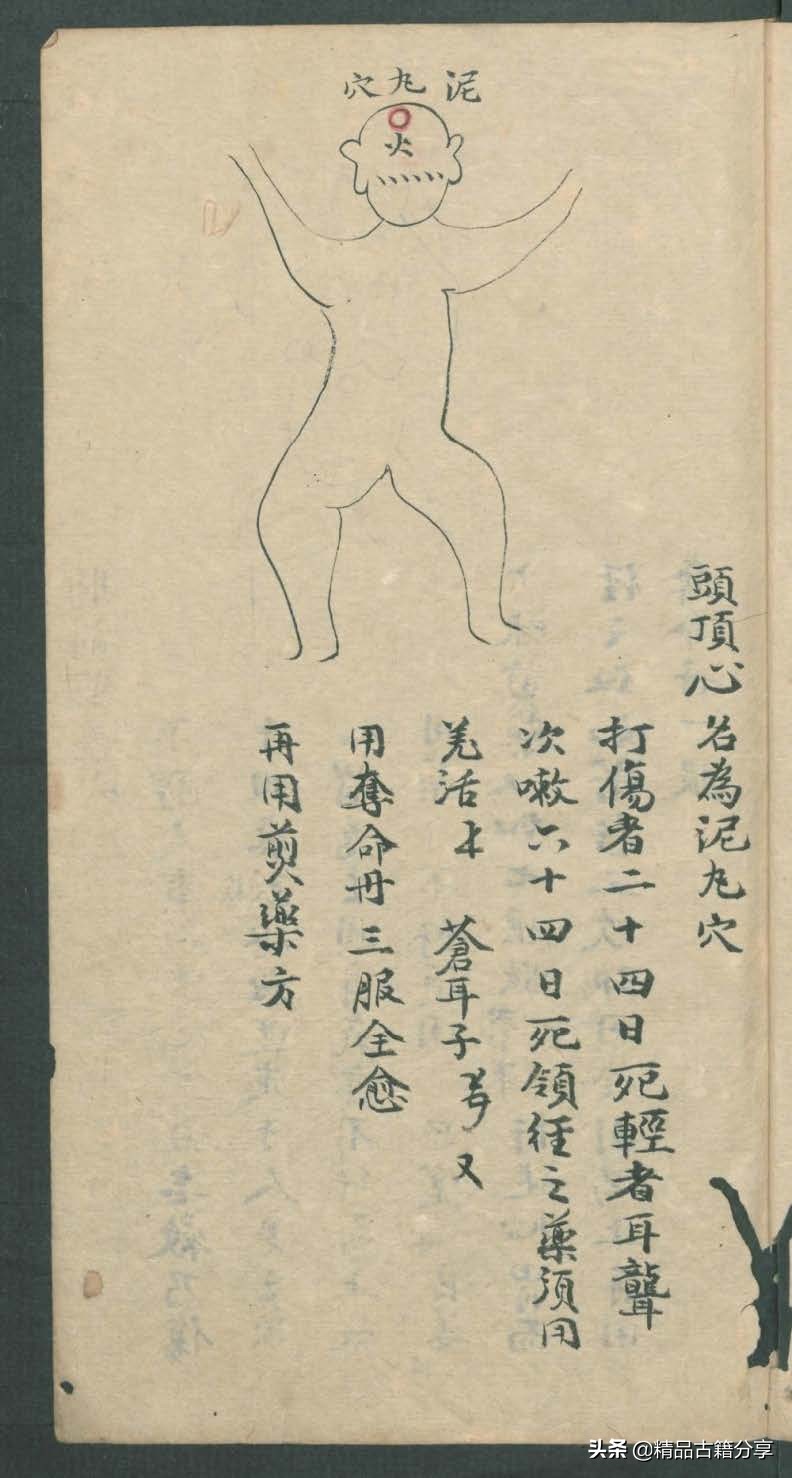 泥丸穴
火
頭頂心名為泥丸穴
打傷者二十四日死輕者耳聾
次嗽六十四日死領徑之藥須用
羌活 蒼耳子 又
用奪命丹三服全愈
再用煎藥方
头条 @精品古籍分享